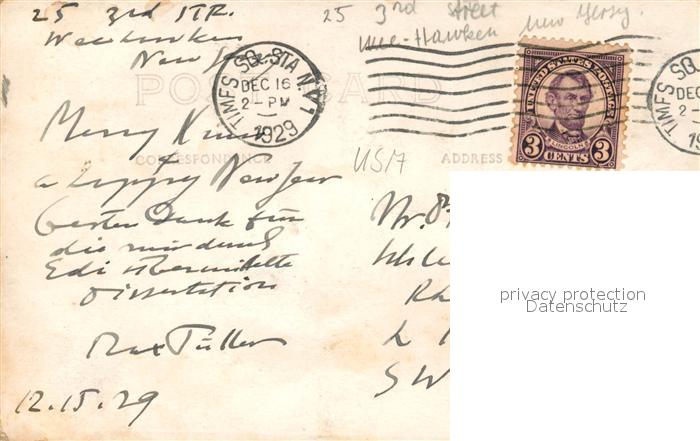 25 3rd STR.
Weehawken
New
25 3rd street
Wee-Hawken New Jersey.
TIMES SQ. STA. N.Y.
DEC 16
2 PM
1929
UNITED STATES POSTAGE
LINCOLN
3 CENTS 3
TIMES SQ.
DEC
2-
19
POST CARD
CORRESPONDENCE
ADDRESS
USA
Merry Xmas
&
a happy New Year
Besten Dank für
die mir durch
Edi übermittelte
Dissertation
Max
12.15.29
Mr.
S W
privacy protection
Datenschutz